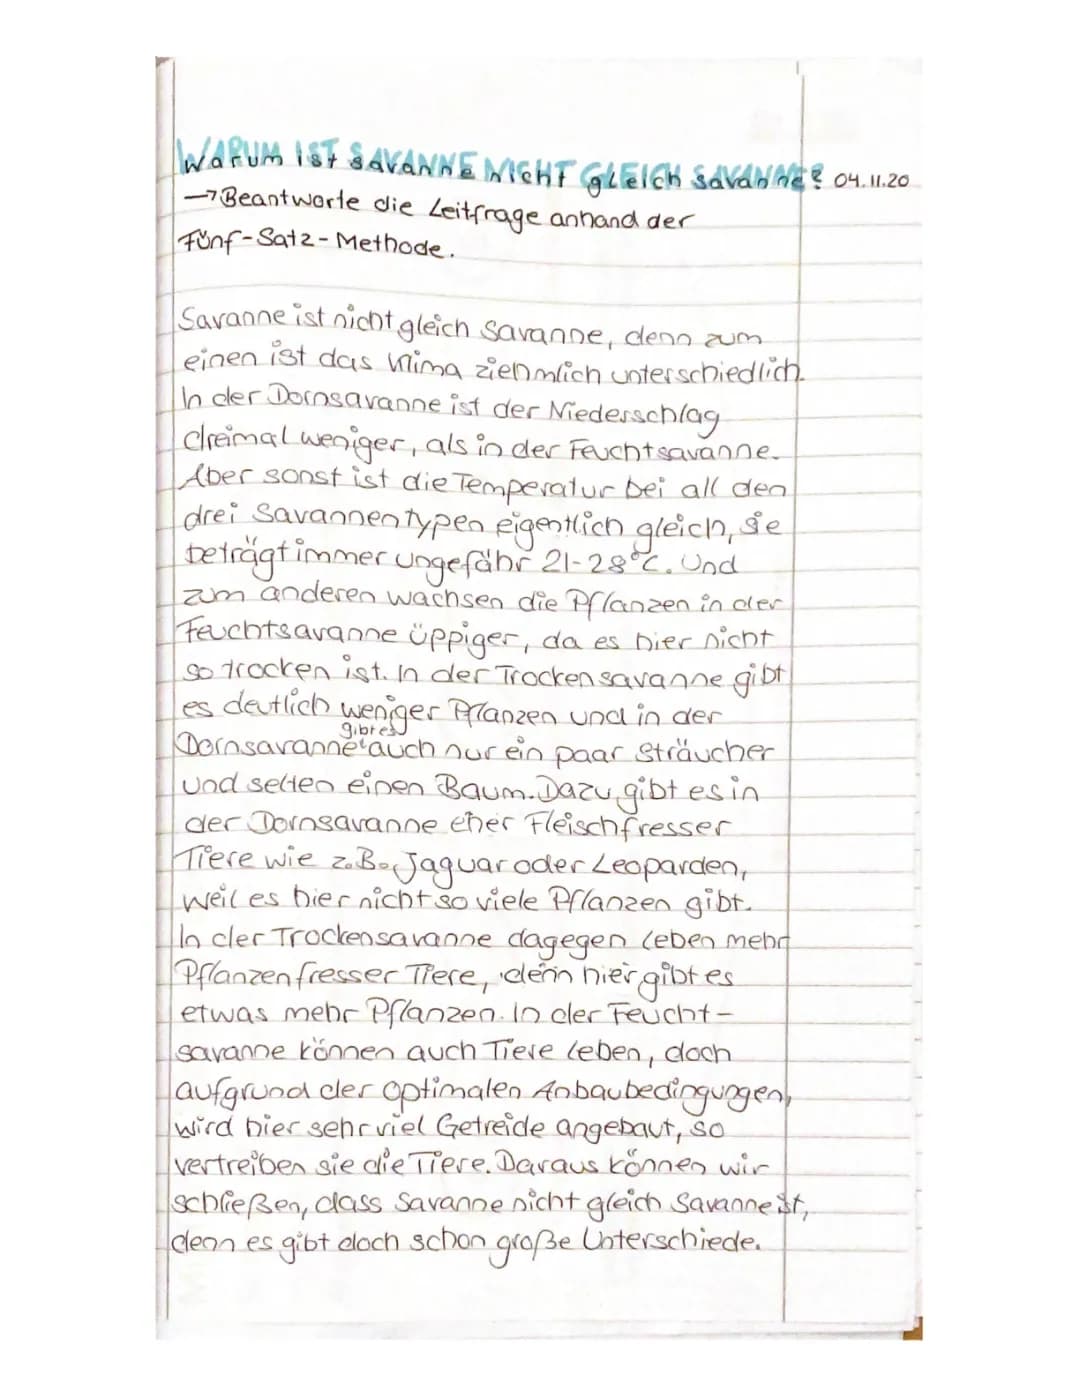 Warum ist Savanne nicht gleich Savanne? 04.11.20
→ Beantworte die Leitfrage anhand der
Fünf-Satz-Methode.
Savanne ist nicht gleich Savanne, denn zum
einen ist das Klima ziehmlich unterschiedlich.
In der Dornsavanne ist der Niederschlag
dreimal weniger, als in der Feuchtsavanne.
Aber sonst ist die Temperatur bei all den
drei Savannentypen eigentlich gleich, sie
beträgt immer ungefähr 21-28°C. Und
zum anderen wachsen die Pflanzen in der
Feuchtsavanne üppiger, da es hier nicht
so trocken ist. In der Trockensavanne gibt
es deutlich weniger Pflanzen und in der
gibt es
Dornsavanne auch nur ein paar Sträucher
und selten einen Baum. Dazu gibt es in
der Dornsavanne eher Fleischfresser
Tiere wie z.B. Jaguar oder Leoparden,
weil es hier nicht so viele Pflanzen gibt.
In der Trockensavanne dagegen leben mehr
Pflanzenfresser Tiere, denn hier gibt es
etwas mehr Pflanzen. In der Feucht-
savanne können auch Tiere leben, doch
aufgrund der optimalen Anbaubedingungen,
wird hier sehr viel Getreide angebaut, so
vertreiben sie die Tiere. Daraus können wir
schließen, dass Savanne nicht gleich Savanne ist,
denn es gibt doch schon große Unterschiede.